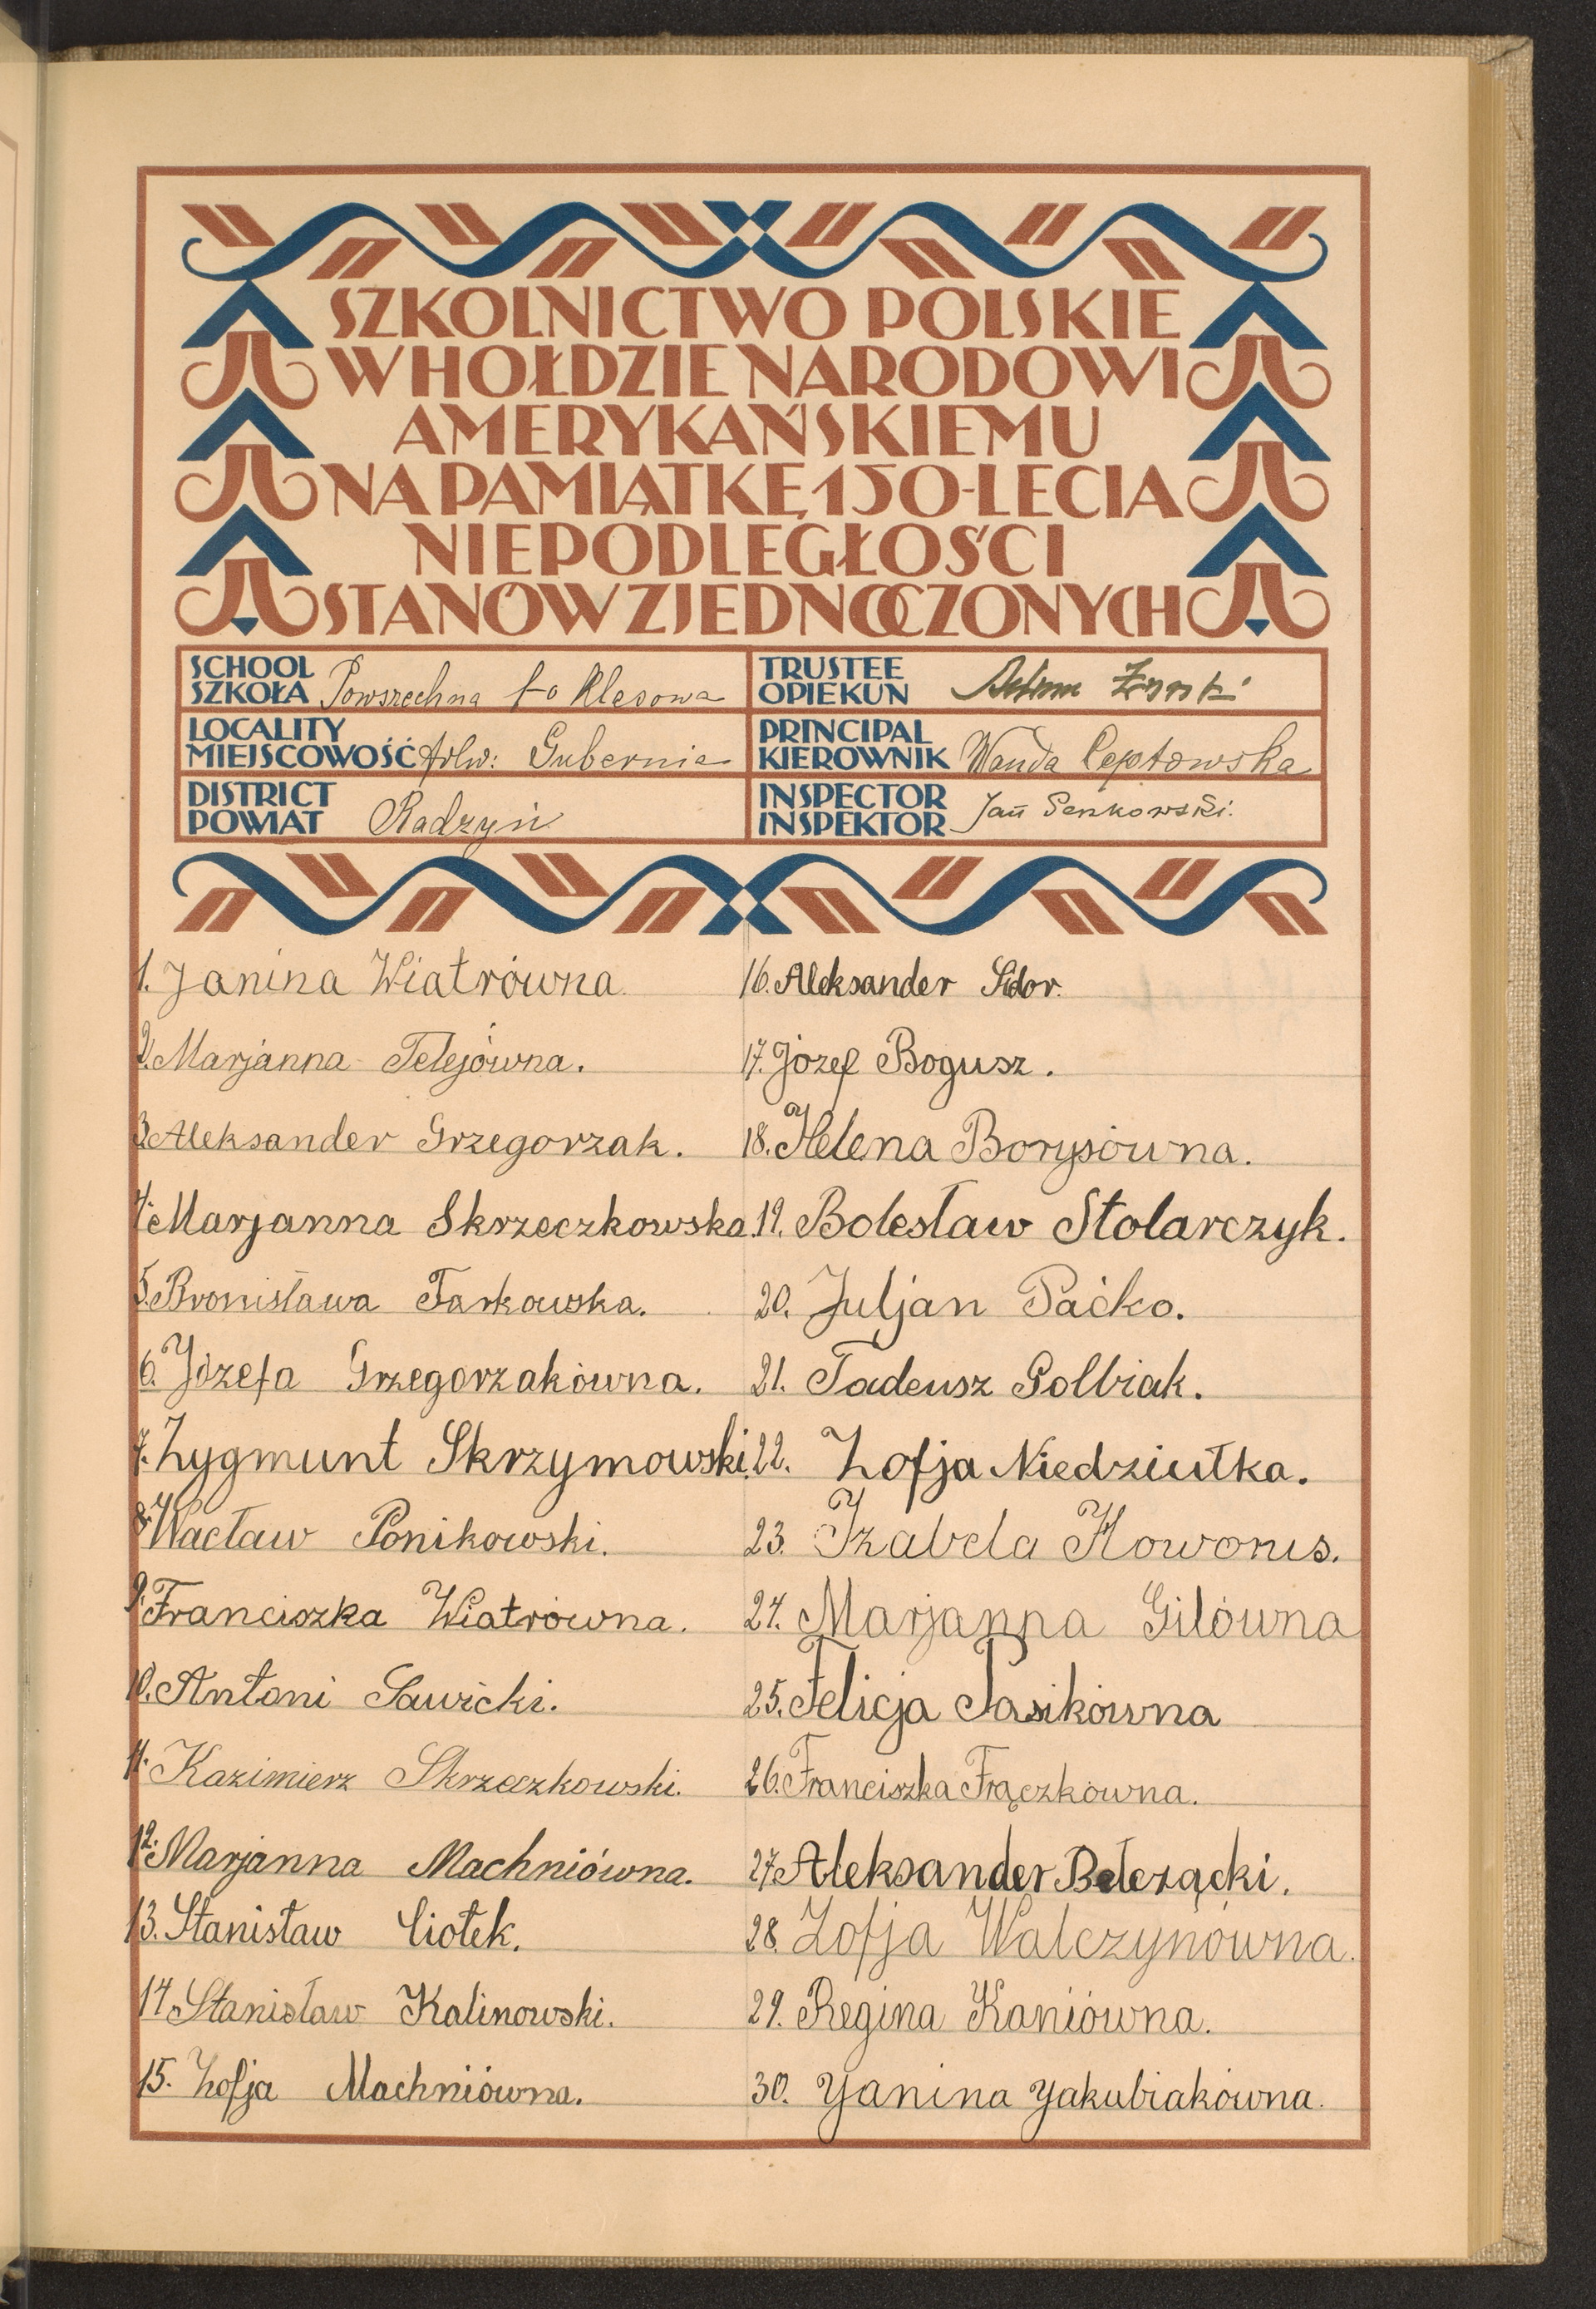 SZKOLNICTWO POLSKIE
W HOŁDZIE NARODOWI
AMERYKAŃSKIEMU
NA PAMIĄTKĘ 150-LECIA
NIEPODLEGŁOŚCI
STANÓW ZJEDNOCZONYCH
SCHOOL
SZKOŁA Powszechna klasowa
LOCALITY
MIEJSCOWOŚĆ folw: Gubernia
DISTRICT
POWIAT Radzyń
TRUSTEE
OPIEKUN Adam
PRINCIPAL
KIEROWNIK Wanda Ceptowska
INSPECTOR
INSPEKTOR Jan Senkowski.
1. Janina Wiatrówna.
2. Marjanna Telejówna.
3. Aleksander Grzegorzak.
4. Marjanna Skrzeczkowska.
5. Bronisława Tarkowska.
6. Józefa Grzegorzakówna.
7. Zygmunt Skrzymowski.
8. Wacław Ponikowski.
9. Franciszka Wiatrówna.
10. Antoni Sawicki.
11. Kazimierz Skrzeczkowski.
12. Marjanna Machniówna.
13. Stanisław Ciołek.
14. Stanisław Kalinowski.
15. Zofja Machniówna.
16. Aleksander Sidor.
17. Józef Bogusz.
18. Helena Borysówna.
19. Bolesław Stolarczyk.
20. Juljan Paćko.
21. Tadeusz Golbiak.
22. Zofja Niedziułka.
23. Izabela Howorus.
24. Marjanna Gilówna
25. Felicja Pasikówna
26. Franciszka Frączkówna.
27. Aleksander Bełczącki.
28. Zofja Walczynówna.
29. Regina Kaniówna.
30. Janina Jakubiakówna.